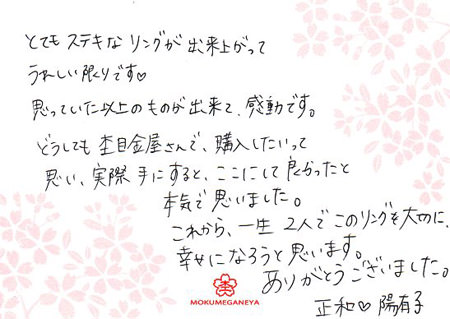 とてもステキなリングが出来上がって
うれしい限りです♡
思っていた以上のものが出来て、感動です。
どうしても杢目金屋さんで、購入したいって
思い、実際手にすると、ここにして良かったと
本気で思いました。
これから、一生2人でこのリングを大切に、
幸せになろうと思います。
ありがとうございました。
正和♡陽有子
MOKUMEGANEYA